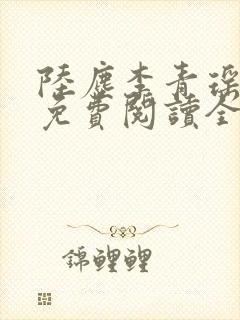 陸塵李青瑶
免費閱讀全
錦鯉鯉